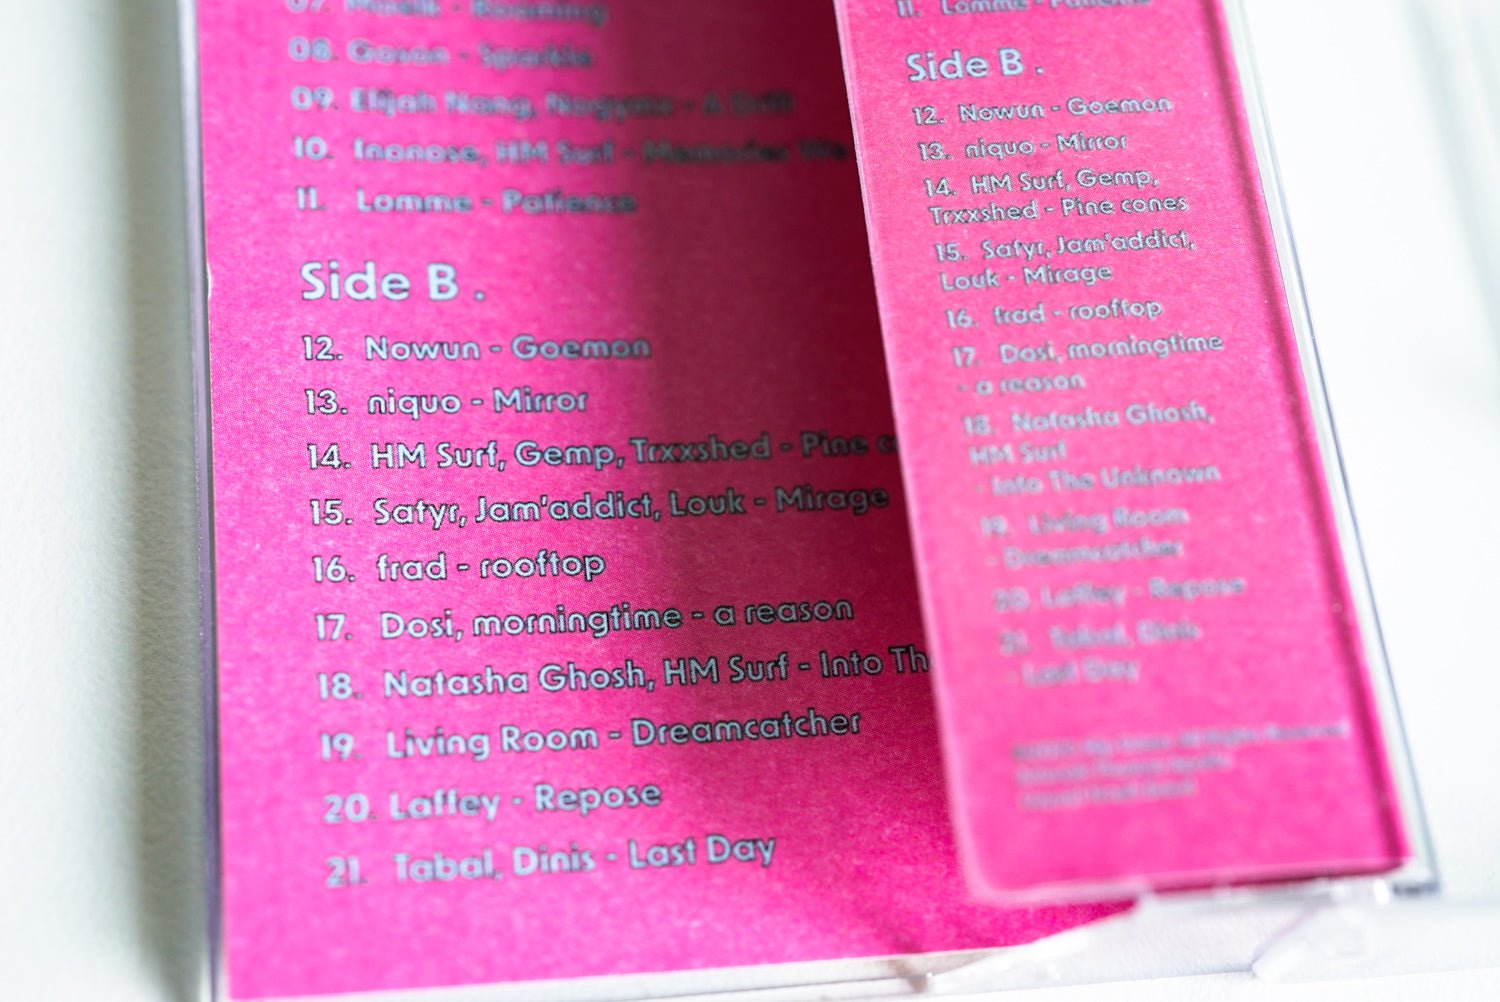 08. Gason - Sparkle
09. Elijah Nang, Nogymx - A Drill
10. Inanose, HM Surf -
11. Lomme - Patience
Side B .
12. Nowun - Goemon
13. niquo - Mirror
14. HM Surf, Gemp, Trxxshed - Pine c
15. Satyr, Jam'addict, Louk - Mirage
16. frad - rooftop
17. Dosi, morningtime - a reason
18. Natasha Ghosh, HM Surf - Into Th
19. Living Room - Dreamcatcher
20. Laffey - Repose
21. Tabal, Dinis - Last Day
11. Lomme - Patience
Side B .
12. Nowun - Goemon
13. niquo - Mirror
14. HM Surf, Gemp,
Trxxshed - Pine cones
15. Satyr, Jam'addict,
Louk - Mirage
16. frad - rooftop
17. Dosi, morningtime
- a reason
18. Natasha Ghosh,
HM Surf
- Into The Unknown
19. Living Room
- Dreamcatcher
20. Laffey - Repose
21. Tabal, Dinis
- Last Day
All Rights Reserved